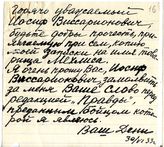 Горячо уважаемый
Иосиф Виссарионович,
будьте добры прочесть, при-
лагаемую при сем, копию
моей записки на имя това-
рища Мехлиса.
Я очень прошу Вас, Иосиф
Виссарионович замолвить
за меня Ваше Слово перед
редакцией "Правды",
преданным бойцом которой
я являюсь.
Ваш Дени